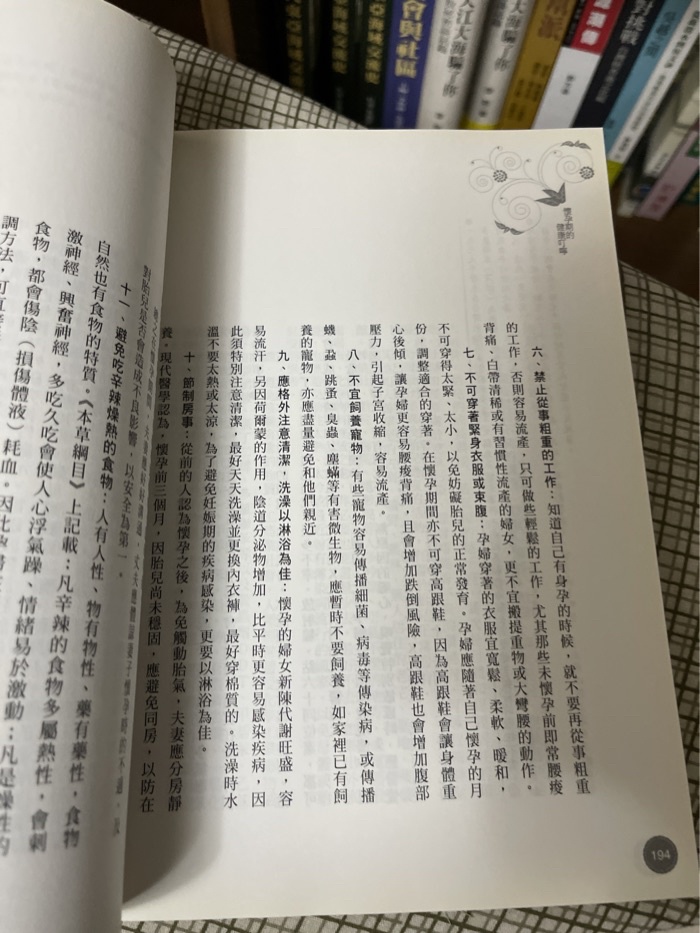 懷孕期的
健康叮嚀
六、禁止從事粗重的工作：知道自己有身孕的時候，就不要再從事粗重
的工作，否則容易流產，只可做些輕鬆的工作，尤其那些未懷孕前即常腰痠
背痛、白帶清稀或有習慣性流產的婦女，更不宜搬提重物或大彎腰的動作。
七、不可穿著緊身衣服或束腹：孕婦穿著的衣服宜寬鬆、柔軟、暖和，
不可穿得太緊、太小，以免妨礙胎兒的正常發育。孕婦應隨著自己懷孕的月
份，調整適合的穿著。在懷孕期間亦不可穿高跟鞋，因為高跟鞋會讓身體重
心後傾，讓孕婦更容易腰痠背痛，且會增加跌倒風險，高跟鞋也會增加腹部
壓力，引起子宮收縮，容易流產。
八、不宜飼養寵物：有些寵物容易傳播細菌、病毒等傳染病，或傳播
蟣、蝨、跳蚤、臭蟲、塵蟎等有害微生物，應暫時不要飼養，如家裡已有飼
養的寵物，亦應盡量避免和他們親近。
九、應格外注意清潔，洗澡以淋浴為佳：懷孕的婦女新陳代謝旺盛，容
易流汗，另因荷爾蒙的作用，陰道分泌物增加，比平時更容易感染疾病，因
此須特別注意清潔，最好天天洗澡並更換內衣褲，最好穿棉質的。洗澡時水
溫不要太熱或太涼，為了避免妊娠期的疾病感染，更要以淋浴為佳。
十、節制房事：從前的人認為懷孕之後，為免觸動胎氣，夫妻應分房靜
養，現代醫學認為，懷孕前三個月，因胎兒尚未穩固，應避免同房，以防在
194
對胎兒是否會造成不良影響，以安全為第一。
十一、避免吃辛辣燥熱的食物：人有人性、物有物性、藥有藥性，食物
自然也有食物的特質。《本草綱目》上記載：凡辛辣的食物多屬熱性，會刺
激神經、興奮神經，多吃久吃會使人心浮氣躁、情緒易於激動；凡是燥性的
食物，都會傷陰（損傷體液）耗血。因此
調方法，可直接
會與社區
大江大海騙了你
大海騙了你
對挑戰